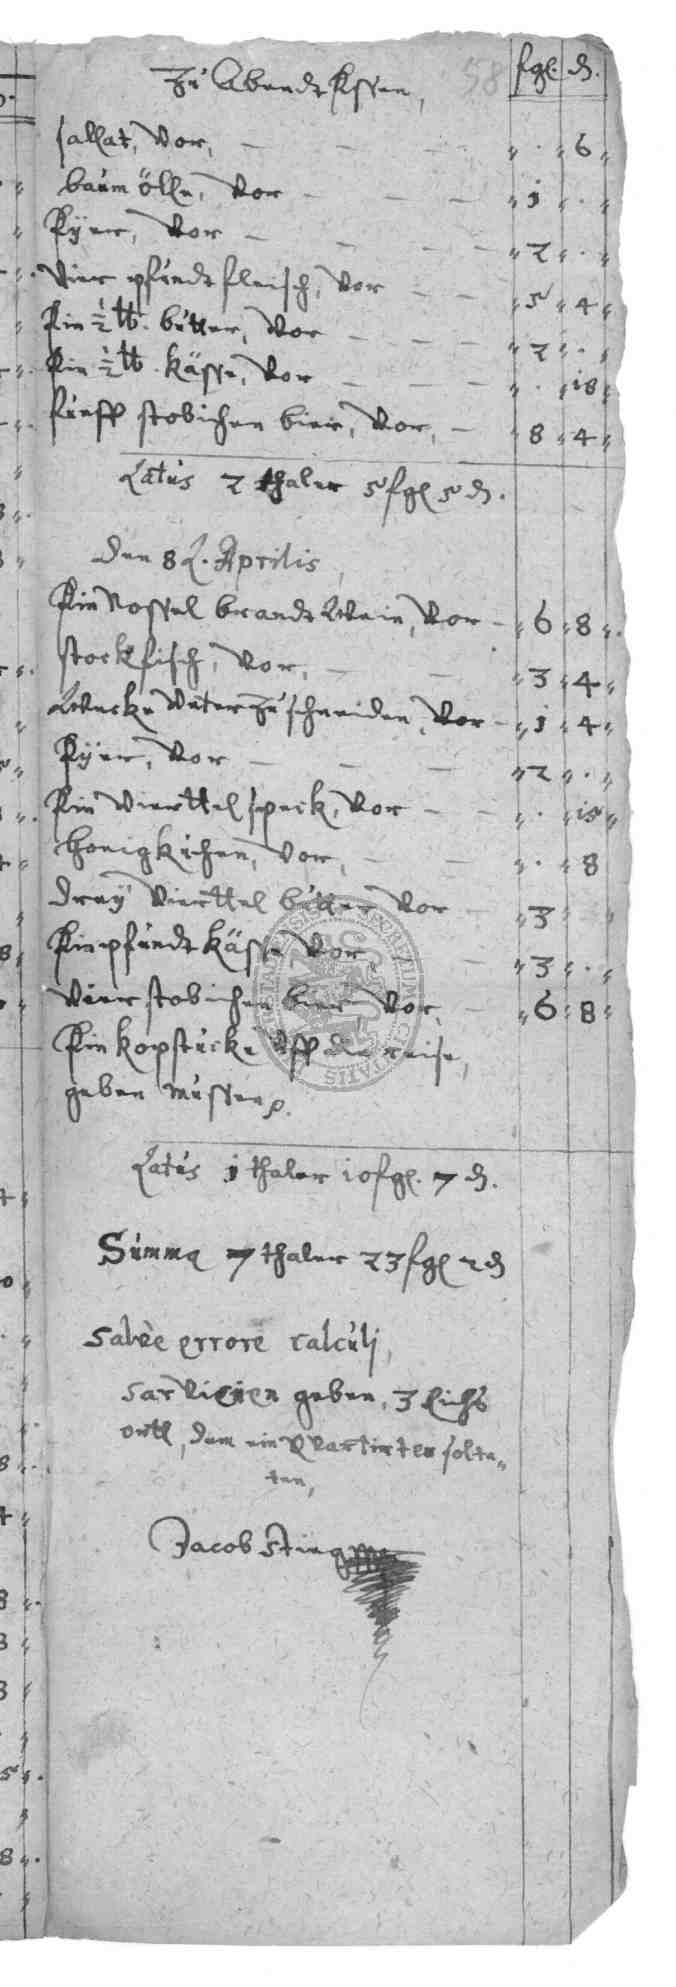 58
Zu Abendt Essen, fgl. d.
sallat, vor, — — — — „ . „ 6 „
baum ölle, vor — — — „ 1 „ . „
Eÿer, vor — — — — „ 2 „ . „
Vier pfundt fleisch, vor — — „ 5 „ 4 „
Ein ½ ℔. butter, vor — — — — „ 2 „ . „
Ein ½ ℔. kässe, vor — — — „ . „ 10 „
fünff stobichen bier, vor, — „ 8 „ 4 „
Latus 2 thaler 5 fgl 5 d.
Den 8 t. Aprilis,
Ein Nossel brandtwein, vor — „ 6 „ 8 „
stockfisch, vor, — — „ 3 „ 4 „
Wecke unter zu schneiden, vor — „ 1 „ 4 „
Eÿer, vor — — — „ 2 „ . „
Ein vierttel speck, vor — — „ . „ 15 „
honigkuchen, vor, — — „ . „ 8
dreÿ vierttel butter vor — „ 3
Ein pfundt kässe vor — — „ 3 „ . „
Vier stobichen bier vor, — „ 6 „ 8 „
Ein kopstucke uff die reise,
geben müssen.
Latus 1 thaler 10 fgl. 7 d.
Summa 7 thaler 23 fgl 2 d
Salvè errore calculj,
geben, 3 Reichs
ortt, dem ein solte„
ten,
Jacob